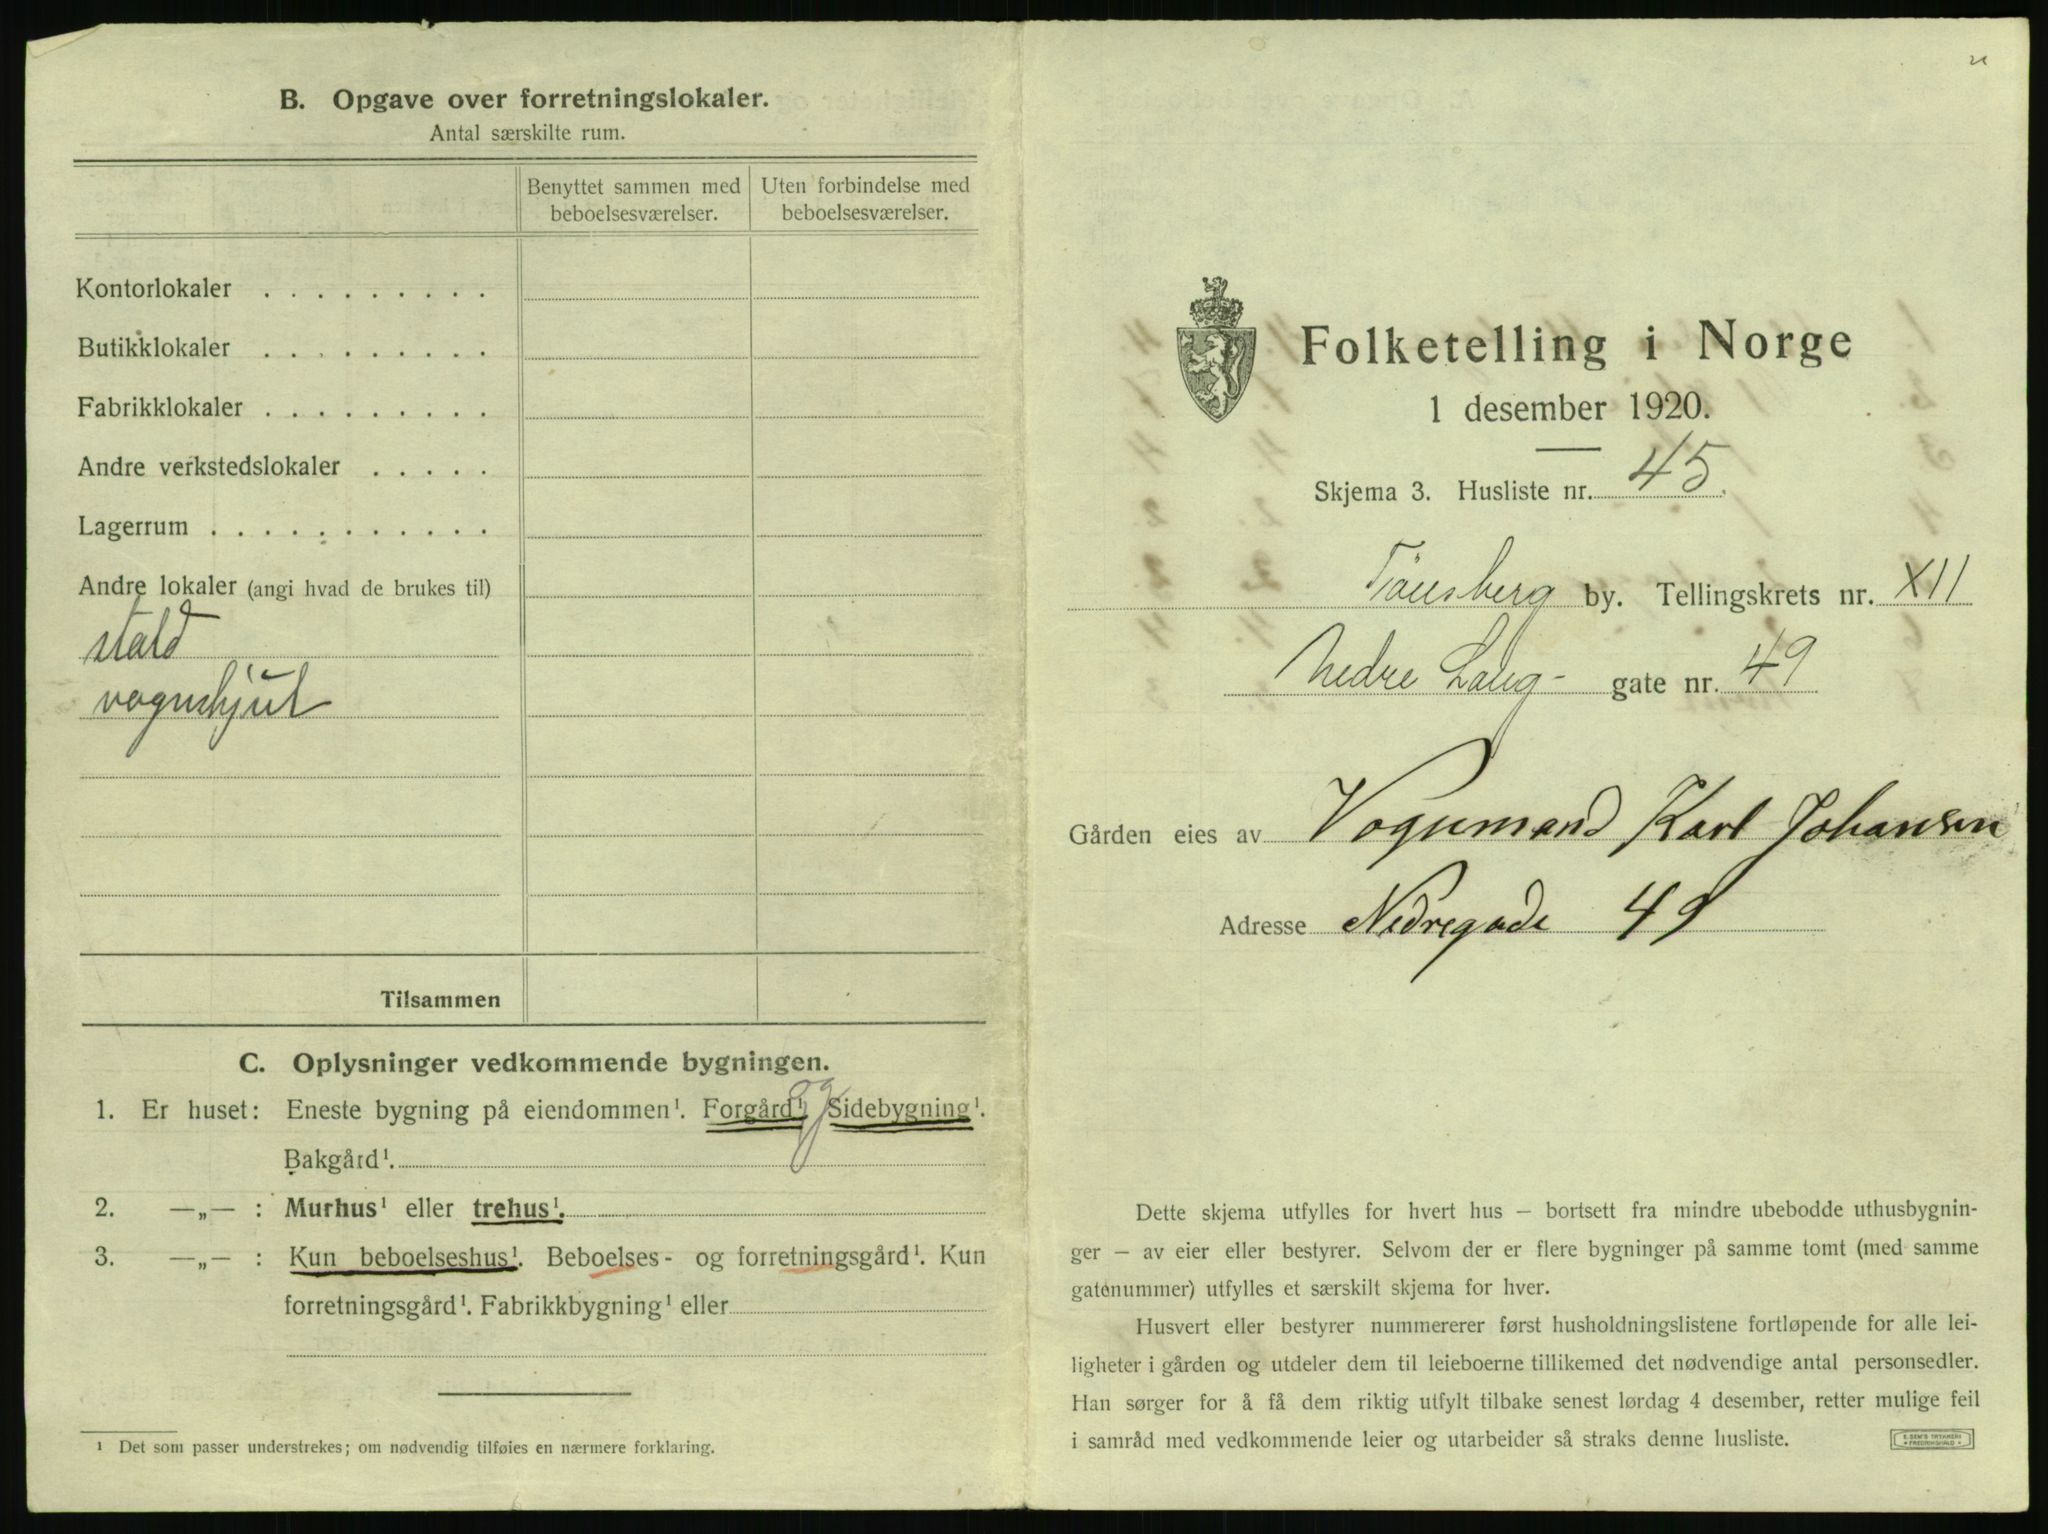 B. Opgave over forretningslokaler.
Antal særskilte rum.
Benyttet sammen med beboelsesværelser.
Uten forbindelse med beboelsesværelser.
Kontorlokaler . . . . . . . . .
Butikklokaler . . . . . . . . .
Fabrikklokaler . . . . . . . . .
Andre verkstedslokaler . . . . .
Lagerrum . . . . . . . . . . .
Andre lokaler (angi hvad de brukes til)
stald
vognskjul
Tilsammen
C. Oplysninger vedkommende bygningen.
1. Er huset: Eneste bygning på eiendommen¹. Forgård¹ og Sidebygning¹.
Bakgård¹.
2. —„— : Murhus¹ eller trehus¹.
3. —„— : Kun beboelseshus¹. Beboelses- og forretningsgård¹. Kun
forretningsgård¹. Fabrikkbygning¹ eller
¹ Det som passer understrekes; om nødvendig tilføies en nærmere forklaring.
Folketelling i Norge
1 desember 1920.
Skjema 3. Husliste nr. 45.
Tönsberg by. Tellingskrets nr. XII
Nedre Lang- gate nr. 49
Gården eies av Vognmand Karl Johansen
Adresse Nedregade 49
Dette skjema utfylles for hvert hus — bortsett fra mindre ubebodde uthusbygnin-
ger — av eier eller bestyrer. Selvom der er flere bygninger på samme tomt (med samme
gatenummer) utfylles et særskilt skjema for hver.
Husvert eller bestyrer nummererer først husholdningslistene fortløpende for alle lei-
ligheter i gården og utdeler dem til leieboerne tillikemed det nødvendige antal personsedler.
Han sørger for å få dem riktig utfylt tilbake senest lørdag 4 desember, retter mulige feil
i samråd med vedkommende leier og utarbeider så straks denne husliste.
E. SEM'S TRYKKERI
FREDRIKSHALD